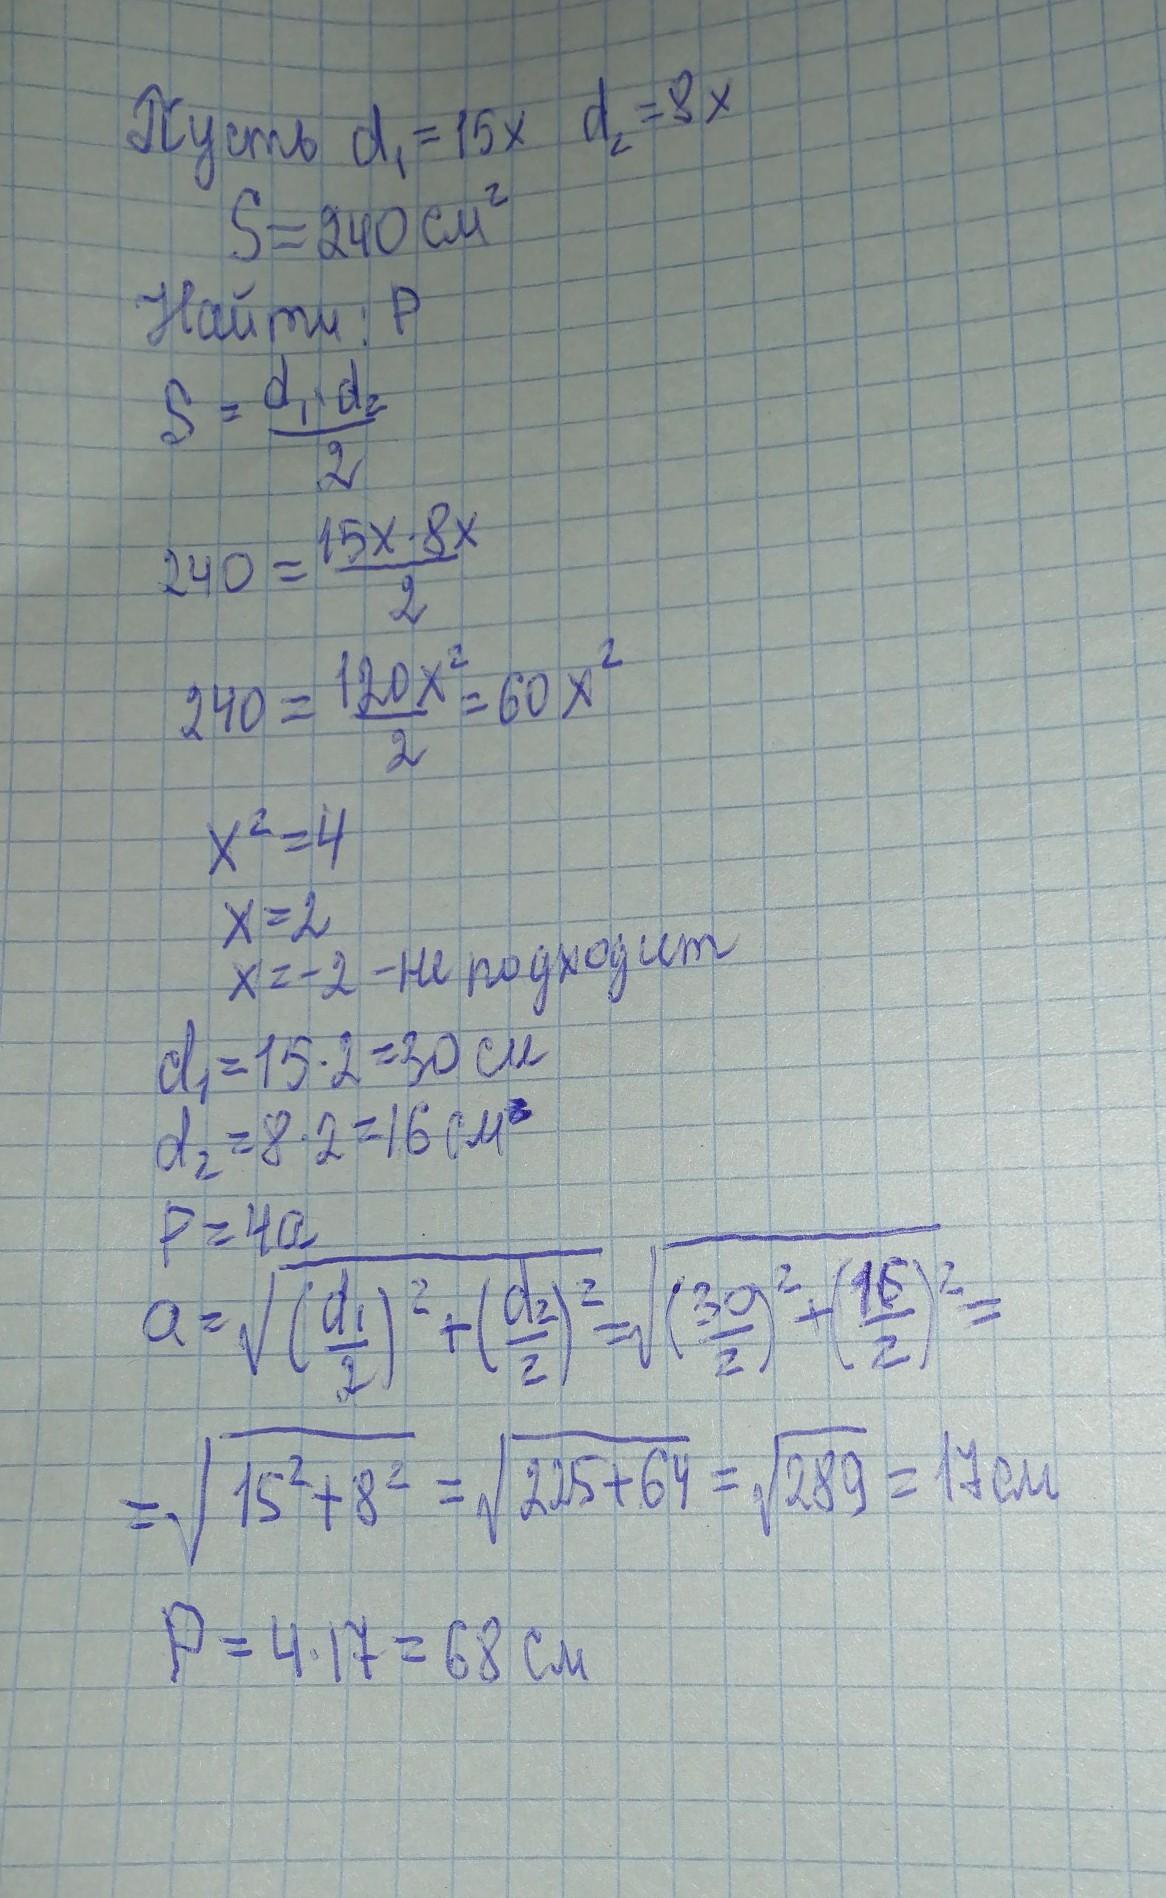 Пусть d₁ = 15x d₂ = 8x
S = 240 см²
Найти: P
S = (d₁ · d₂)/2
240 = (15x · 8x)/2
240 = 120x²/2 = 60x²
x² = 4
x = 2
x = -2 - не подходит
d₁ = 15 · 2 = 30 см
d₂ = 8 · 2 = 16 см
P = 4a
a = √((d₁/2)² + (d₂/2)²) = √((30/2)² + (16/2)²) =
= √(15² + 8²) = √(225 + 64) = √289 = 17 см
P = 4 · 17 = 68 см